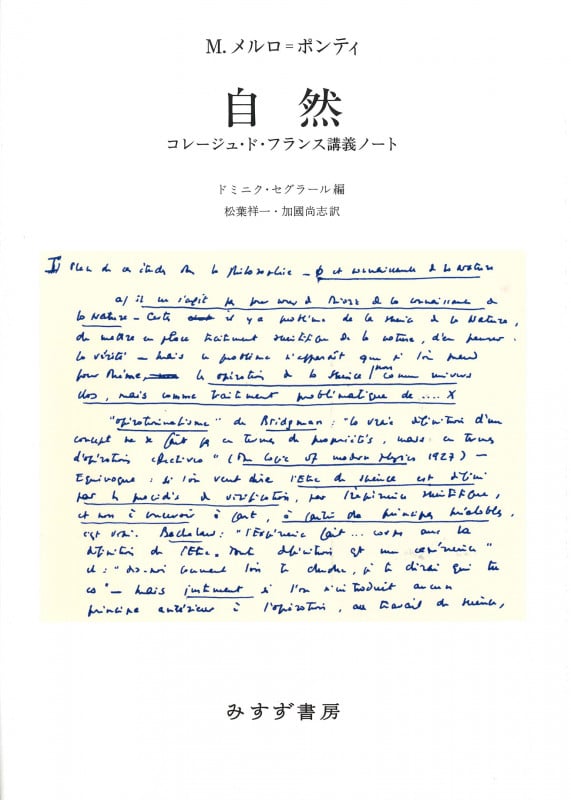 M. メルロ=ポンティ
自然
コレージュ・ド・フランス講義ノート
ドミニク・セグラール編
松葉祥一・加國尚志訳
la Philosophie – et connaissance de la Nature
a/ il ne s'agit pas pour nous de théorie de la connaissance de
la Nature – Certes il y a problème de la science de la Nature,
du mettre en place traitement scientifique de la nature, d'en penser
la vérité – mais ce problème n'apparaît que si l'on prend
pour thème, les opérations de la science non comme univers
clos, mais comme traitement problématique de .... X
"opérationalisme" de Bridgman : "la vraie définition d'un
concept ne se fait pas en termes de propriétés, mais en termes
d'opérations effectives" (The Logic of modern physics 1927) –
Equivoque : si l'on veut dire l'Etre de science est défini
par les procédés de vérification, par l'expérience scientifique,
et non à concevoir à part, à partir de principes préalables,
c'est vrai. Bachelard : "l'Expérience fait ... corps avec la
définition de l'Etre. Toute définition est une expérience"
id : "dis-moi comment l'on te cherche, je te dirai qui tu
es" – Mais justement si l'on n'introduit aucun
principe antérieur à l'opération, au travail de science,
みすず書房